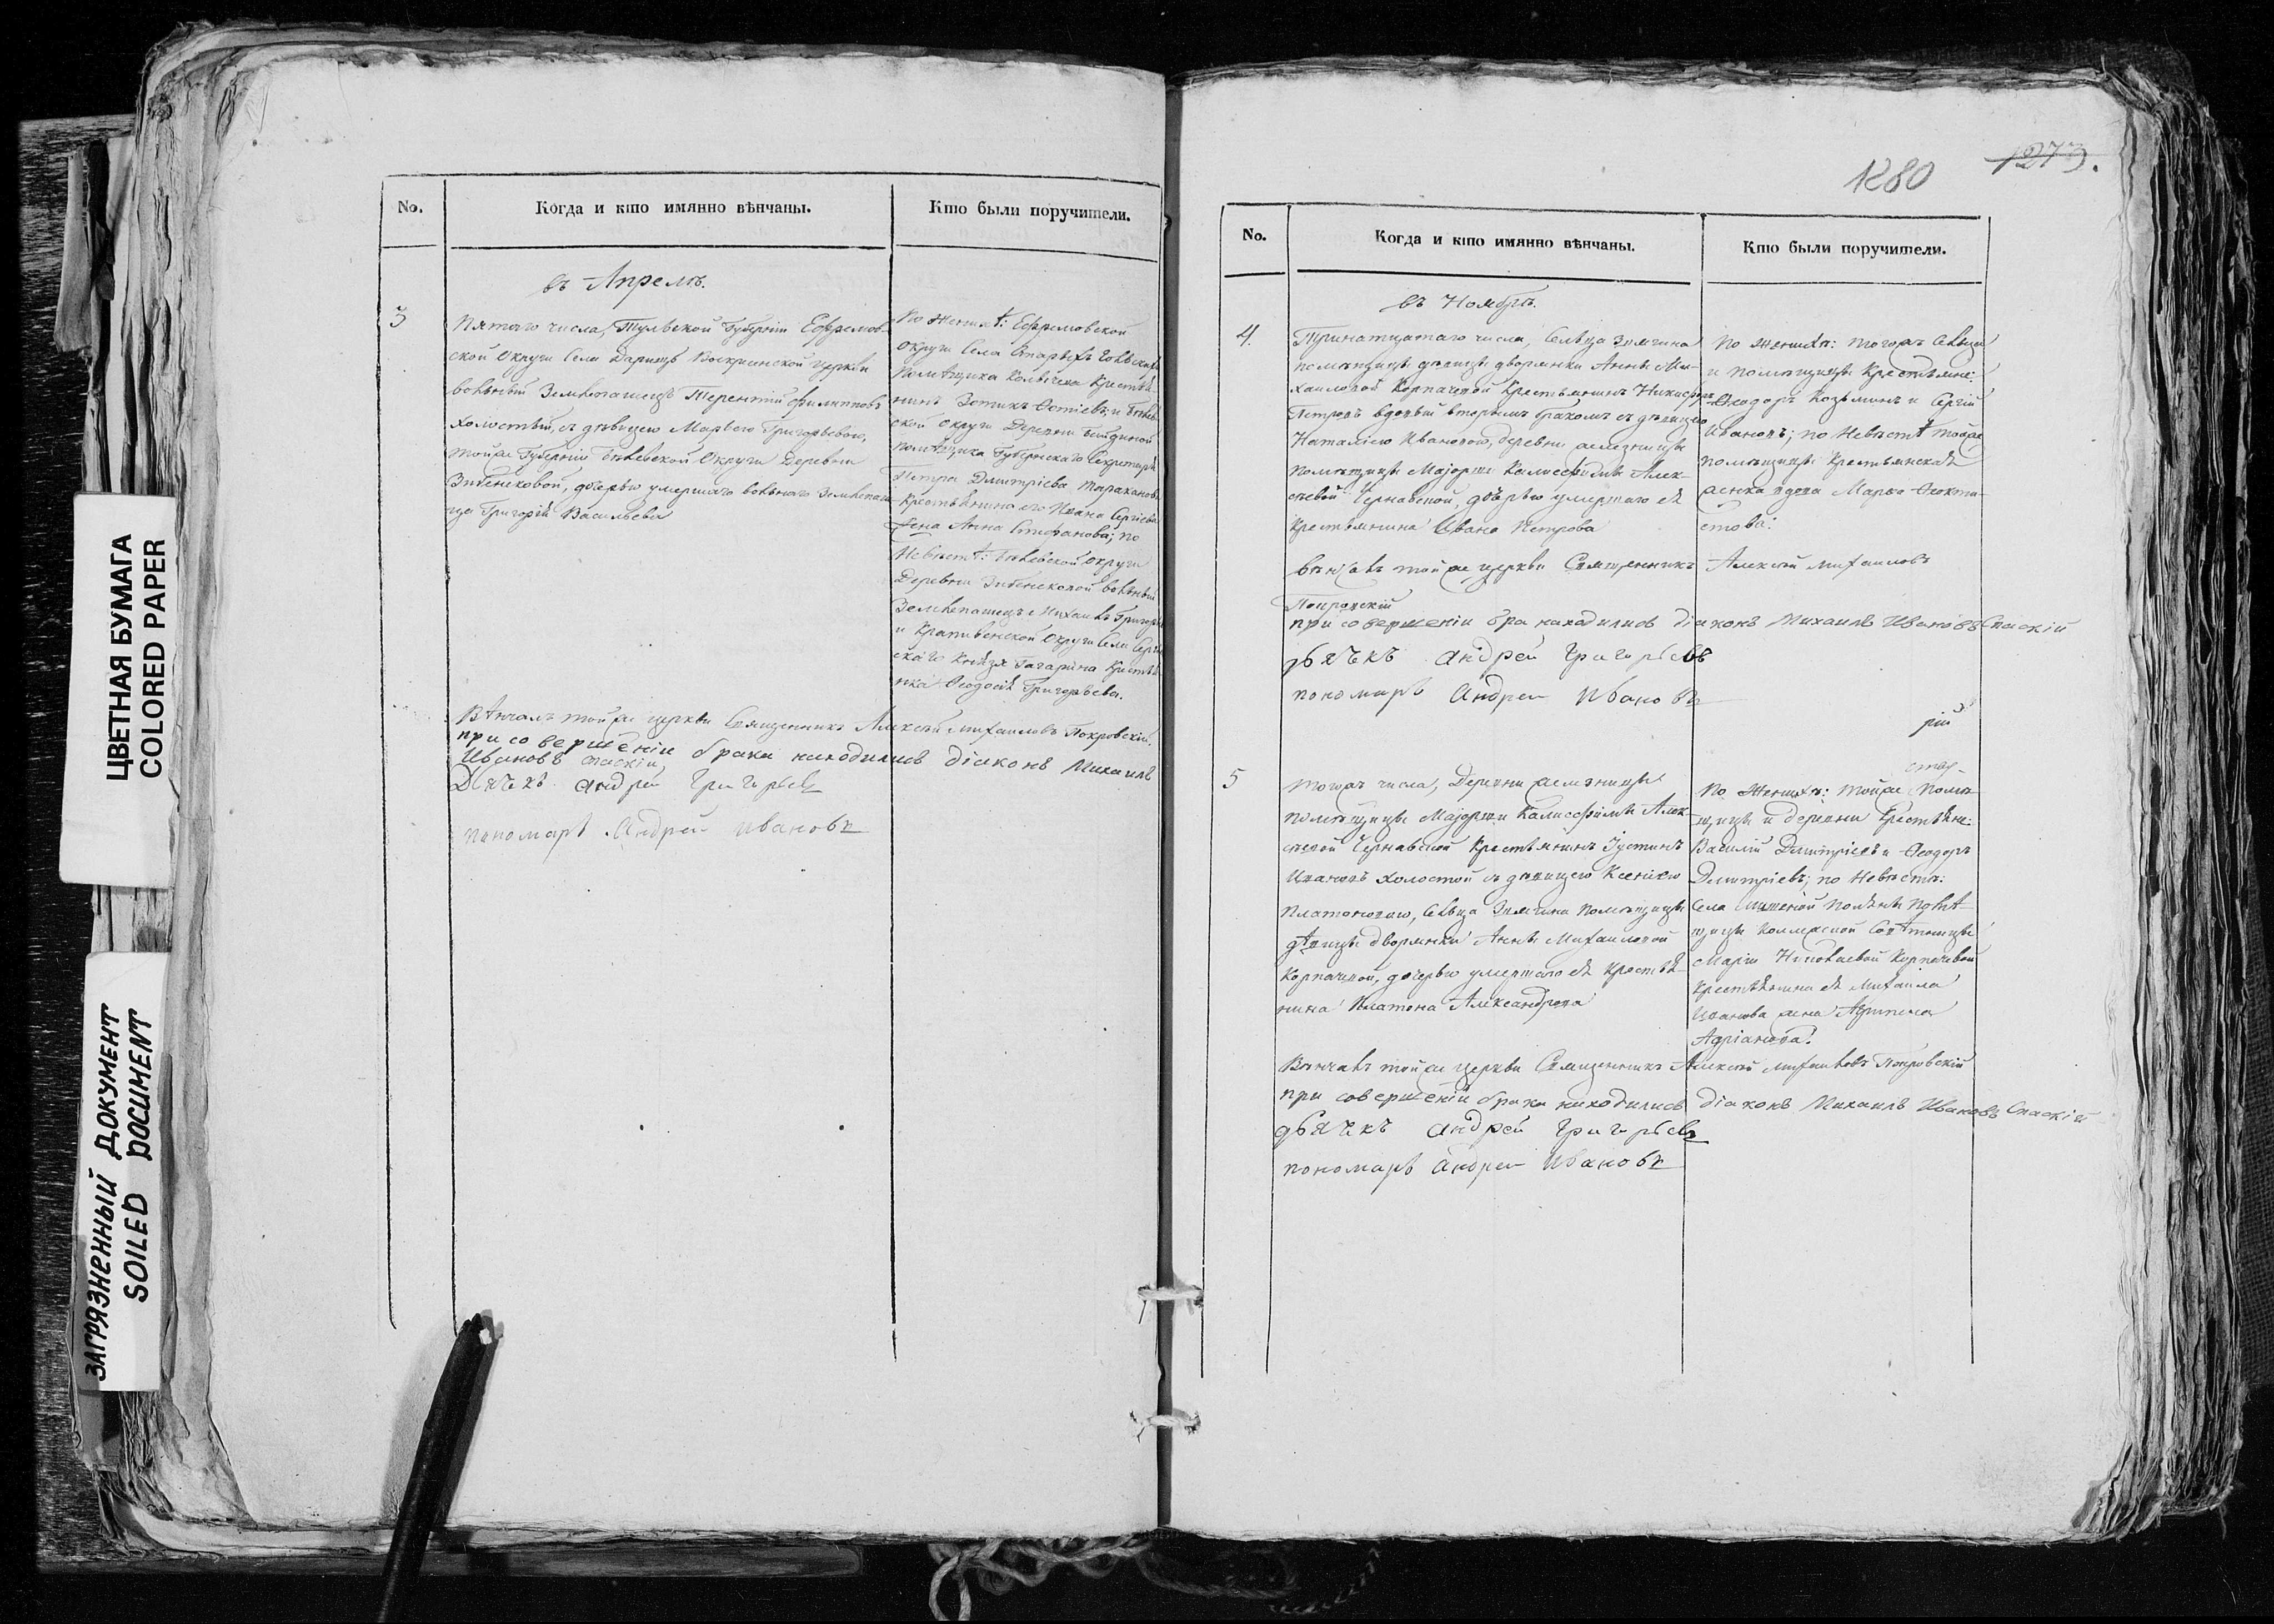 ЦВЕТНАЯ БУМАГА
COLORED PAPER
ЗАГРЯЗНЕННЫЙ ДОКУМЕНТ
SOILED DOCUMENT
No.
Когда и кто имянно вѣнчаны.
Кто были поручители.
въ Апрелѣ.
3
Пятаго числа, Тульской Губерніи Ефремов-
ской Округи Села Дарищъ Воскрисенской церкви
вольный Землепашецъ Терентій Филипповъ
холостый, съ дѣвицею Марѳою Григорьевою,
тойже Губерніи Бѣлевской Округи Деревни
дочерью умершаго вольнаго Землепаш-
ца Григорія Васильева
По женихѣ: Ефремовской
Округи Села
Помѣщика Крестья-
нинъ Зотикъ и Бѣлев-
ской Округи Деревни
Помѣщика Губернскаго Секретаря
Петра Дмитріева
Крестьянина его Ивана Сергіева
жена Анна Стефанова; по
Невѣстѣ: Бѣлевской Округи
Деревни вольный
Землепашецъ Михаилъ
и Крапивенской Округи Села
Князя Гагарина Крестья-
нка Ѳеодосія Григорьева.
Вѣнчалъ тойже церкви Священникъ Алексѣй Михаиловъ Покровскій.
при совершеніи брака находились діаконъ Михаилъ
Ивановъ Спаскій
Дячекъ андрей Григорьевъ
пономарь Андрей Ивановъ
1280
1279.
No.
Когда и кто имянно вѣнчаны.
Кто были поручители.
въ Ноябрѣ.
4.
Тринатцатаго числа, Сельца
помѣщицы дѣвицы дворянки Анны Ми-
хаиловой Карпачевой Крестьянинъ
Петровъ вдовый вторымъ бракомъ съ дѣвицею
Наталіею Ивановою, деревни
помѣщицы Маіорши Алек-
сѣевой Чернавской, дочерью умершаго ея
Крестьянина Ивана Петрова
По женихѣ: тогожъ Сельца
и помѣщицы Крестьяне:
Ѳеодоръ Козьминъ и Сергій
Ивановъ; по Невѣстѣ тойже
помѣщицы Крестьянская
женка вдова Марѳа Ѳеокти-
стова.
вѣнчалъ тойже церкви Священникъ Алексѣй Михаиловъ
Покровскій
при совершеніи бра находились діаконъ Михаилъ Ивановъ Спаскій
дьячекъ андрей Григорьевъ
пономарь Андрей Ивановъ
рій
5
тогожъ числа, Деревни
помѣщицы Маіорши Алек-
сѣевой Чернавской Крестьянинъ Іустинъ
Ивановъ холостой съ дѣвицею Ксеніею
Платоновою, Сельца помѣщицы
дѣвицы дворянки Анны Михаиловой
Карпачевой, дочерью умершаго ея Крестья-
нина Платона Александрова
По женихѣ: тойже помѣ-
щицы и деревни Крестьяне:
Василій Дмитріевъ и Ѳеодоръ
Дмитріевъ; по Невѣстѣ:
Села Поляны помѣ-
щицы
Маріи Николаевой Карпачевой
Крестьянина ея Михаила
Иванова жена Агрипена
Адріанова.
Вѣнчалъ тойже церкви Священникъ Алексѣй Михаиловъ Покровскій
при совершеніи брака находились діаконъ Михаилъ Ивановъ Спаскій
дьячекъ андрей Григорьевъ
пономарь андрей Ивановъ